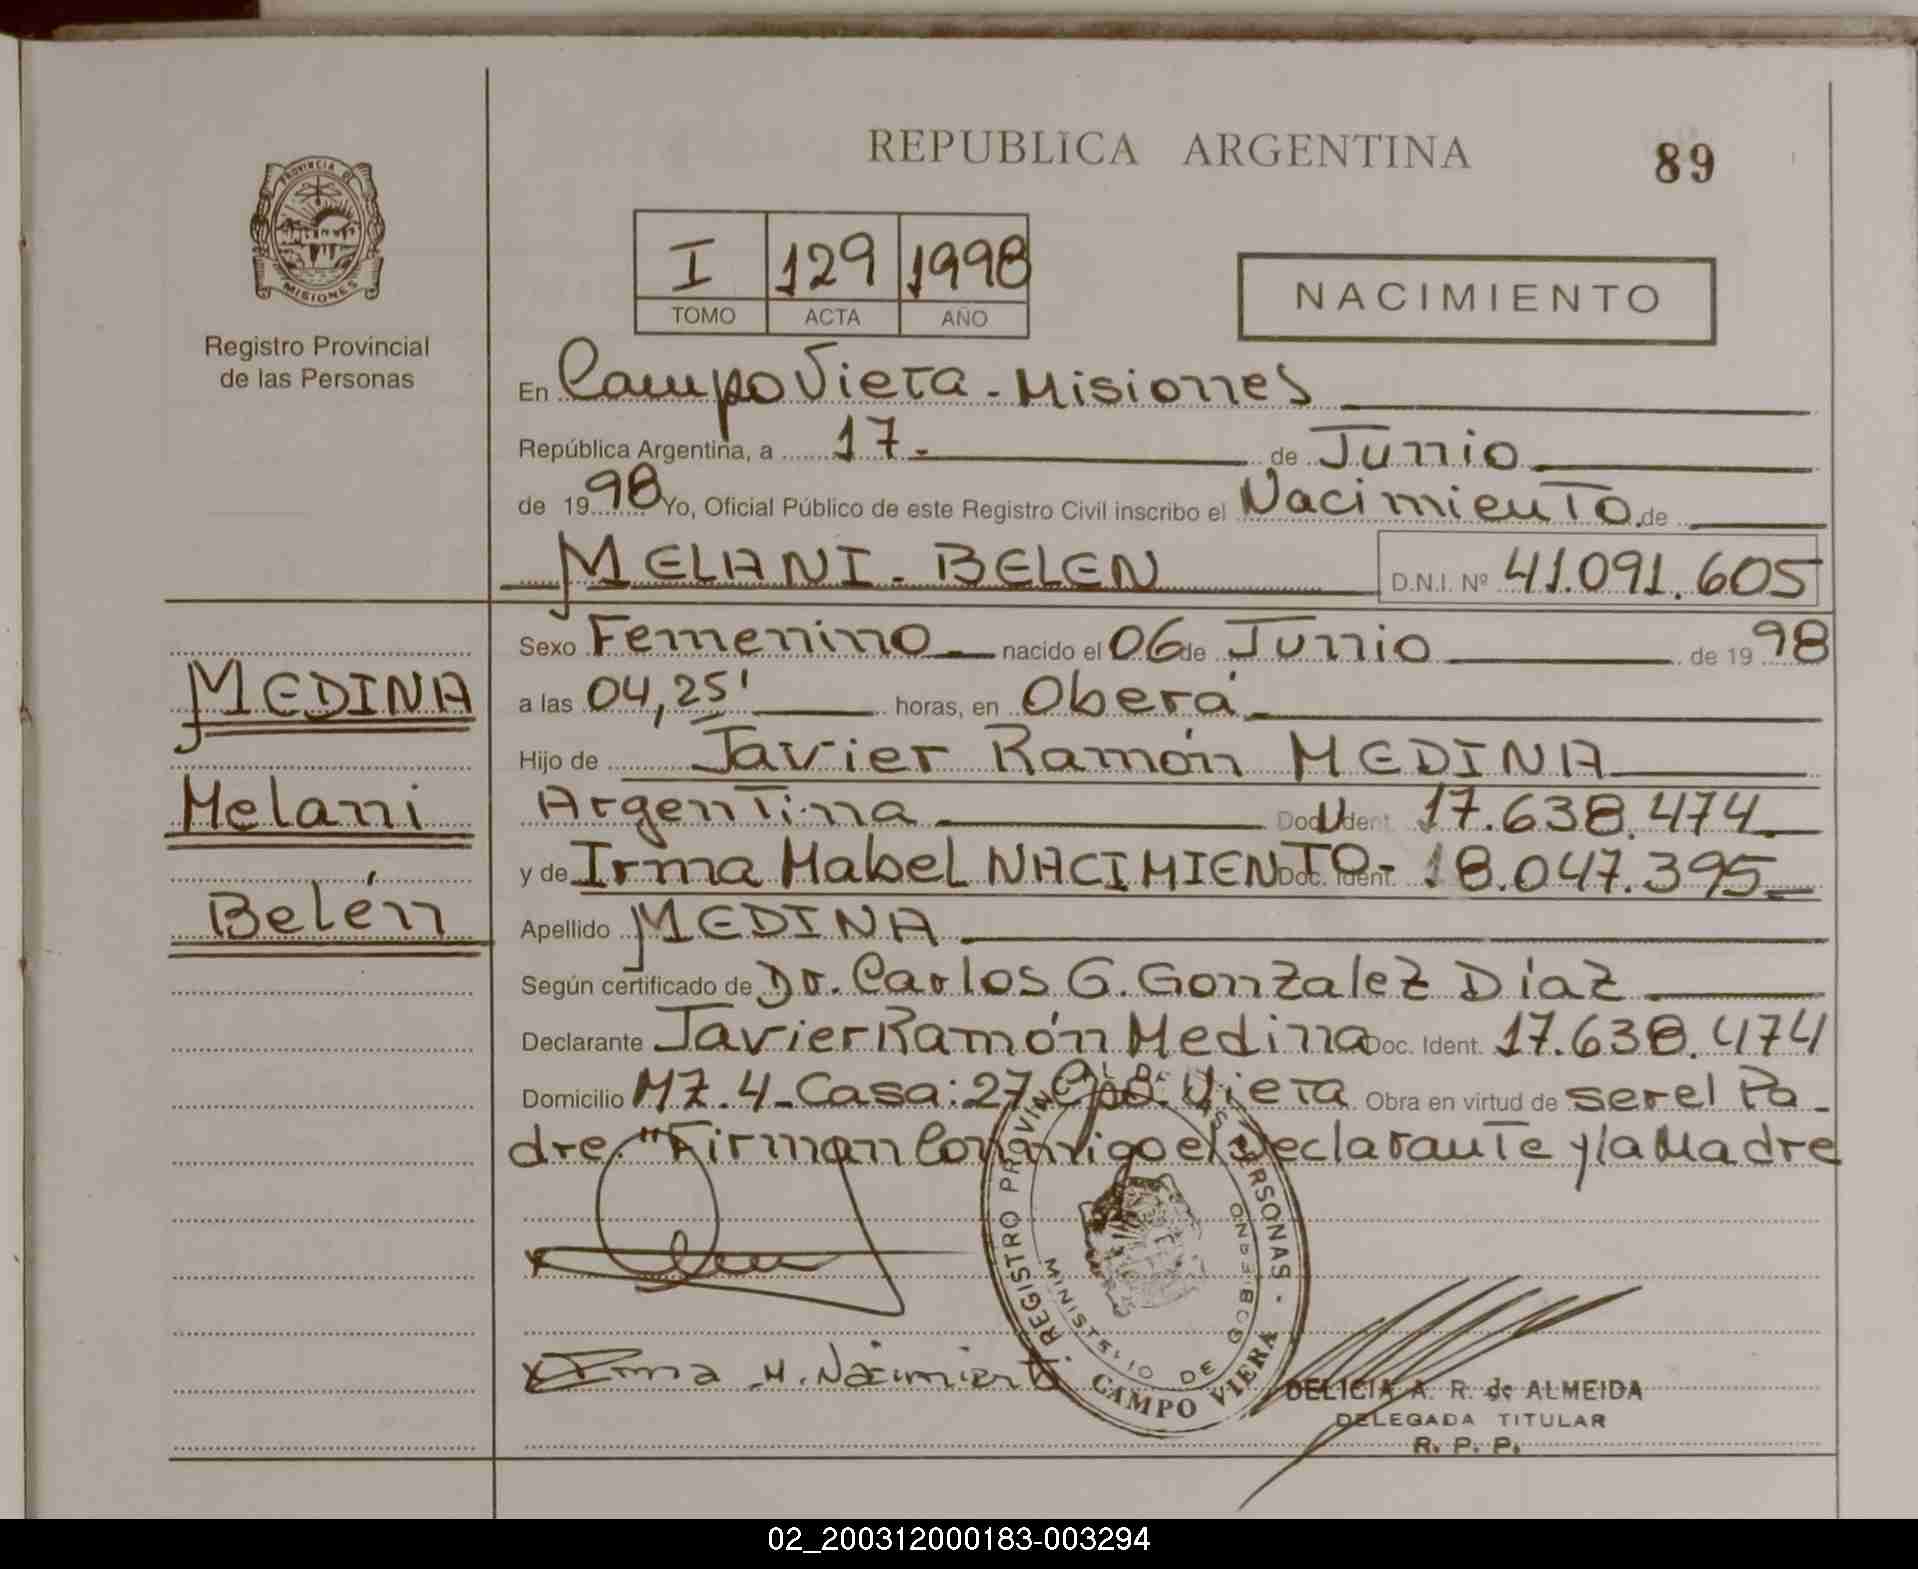 REPUBLICA ARGENTINA
89
PROVINCIA DE
MISIONES
Registro Provincial
de las Personas
I 129 1998
TOMO ACTA AÑO
NACIMIENTO
En Campo Viera - Misiones
República Argentina, a 17.- de Junio
de 1998 Yo, Oficial Público de este Registro Civil inscribo el Nacimiento de
MELANI - BELEN D.N.I. Nº 41.091.605
MEDINA
Melani
Belén
Sexo Femenino nacido el 06 de Junio de 1998
a las 04,25' horas, en Oberá
Hijo de Javier Ramón MEDINA
Argentina Doc. Ident. 17.638.474
y de Irma Mabel NACIMIENTO - Doc. Ident. 18.047.395
Apellido MEDINA
Según certificado de Dr. Carlos G. Gonzalez Díaz
Declarante Javier Ramón Medina Doc. Ident. 17.638.474
Domicilio MZ. 4 - Casa: 27 Cpo. Viera Obra en virtud de ser el Pa-
dre. "Firman Conmigo el Declarante y la Madre
REGISTRO PROVINCIAL DE LAS PERSONAS -
MINISTERIO DE GOBIERNO
CAMPO VIERA
x Irma M. Nacimiento
DELICIA A. R. de ALMEIDA
DELEGADA TITULAR
R. P. P.
02_200312000183-003294